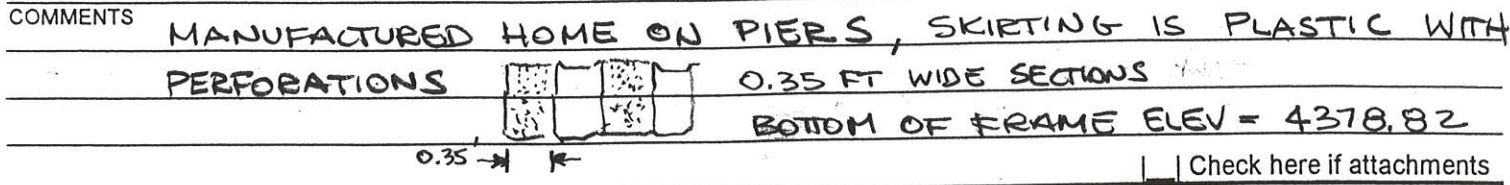 COMMENTS MANUFACTURED HOME ON PIERS, SKIRTING IS PLASTIC WITH
PERFORATIONS 0.35 FT WIDE SECTIONS
BOTTOM OF FRAME ELEV = 4378.82
0.35'
|__| Check here if attachments